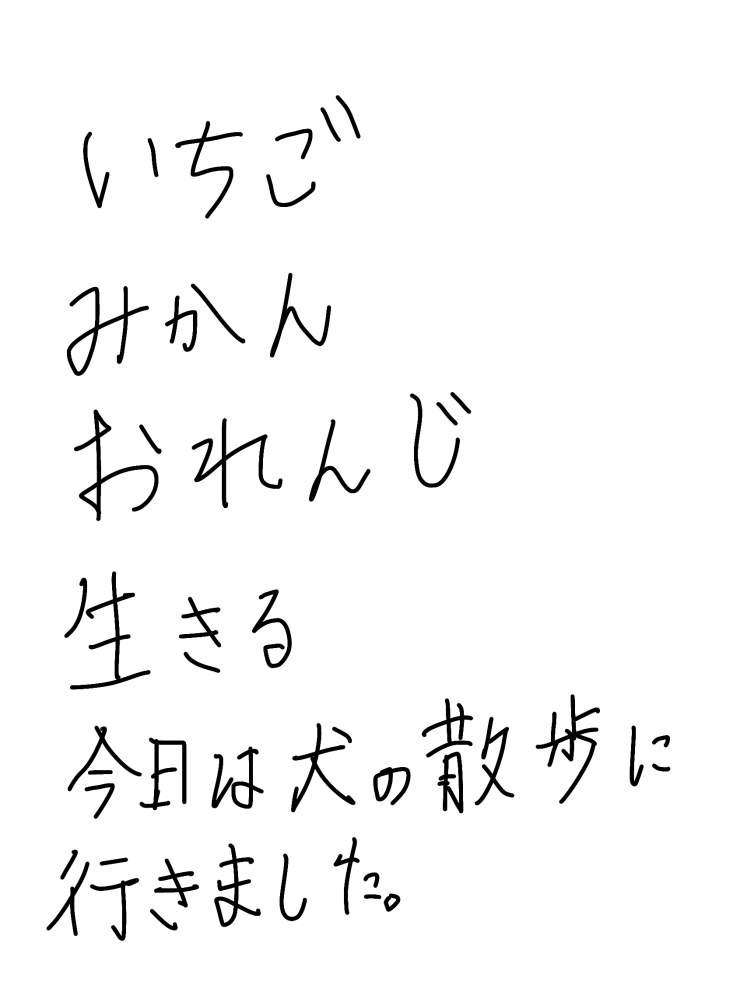 いちご
みかん
おれんじ
生きる
今日は犬の散歩に
行きました。